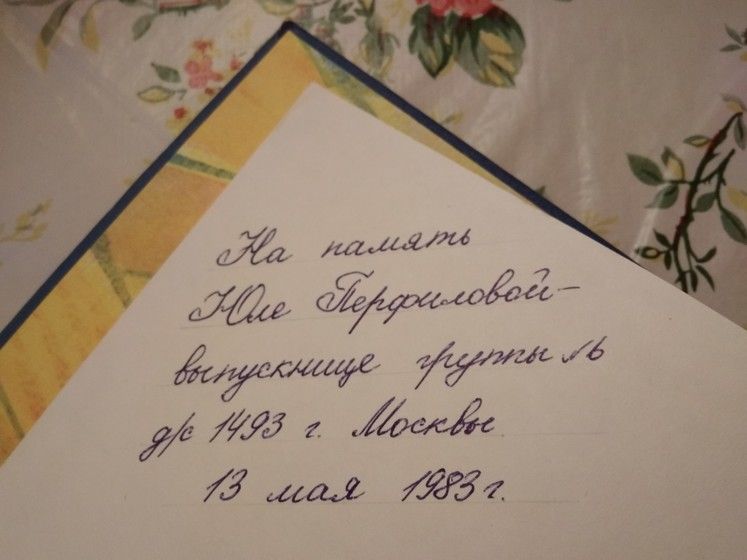 На память
Юле Перфиловой-
выпускнице группы
д/с 1493 г. Москвы
13 мая 1983 г.